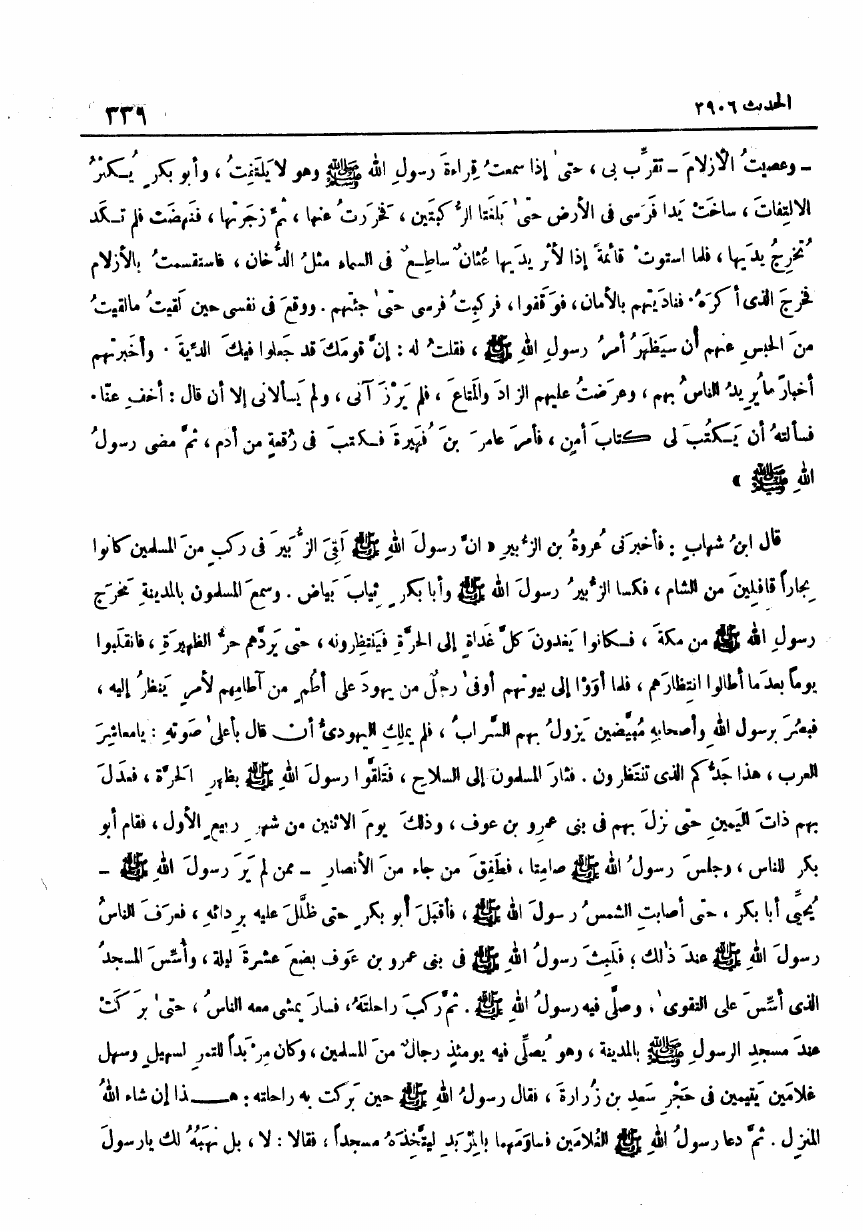 الحديث ٣٩٠٦
٣٣٩
ـ وعصيتُ الأزلامَ ـ تقرِّب بى ، حتىٰ إذا سمعتُ قِراءةَ رسولِ الله ﷺ وهو لا يَلتَفِتُ ، وأبو بكرٍ يُـكثرُ
الالتِفاتَ ، ساخَتْ يَدا فَرَسى فى الأرض حتىٰ بَلغَتا الرُّ كبتَين ، فخرَرتُ عنها ، ثمَّ زجَرتُها ، فنَهضَت فلم تـكَد
تُخرِجُ يدَيها ، فلما استوتْ قائمةً إذا لأثرِ يدَيها عُثانٌ ساطِعٌ فى السماء مثلُ الدُّخان ، فاستقسمتُ بالأزلام
فخرجَ الذى أكرَهُ . فنادَيتهم بالأمان، فوَقَفوا، فركبتُ فرسى حتىٰ جئتُهم . ووقعَ فى نفسى حين لَقيتُ ما لقيتُ
منَ الحبسِ عنهم أن سيَظهَرُ أمرُ رسولِ اللهِ ﷺ ، فقلتُ له : إنَّ قومَك قد جَعلوا فيكَ الدِّيةَ . وأخبرتهم
أخبارَ ما يُريدُ الناسُ بهم ، وعرَضتُ عليهم الزادَ والمَتاعَ ، فلم يَرْزَآنى ، ولم يَسألانى إلا أن قال : أخفِ عنّا .
فسألتهُ أن يَـكتُبَ لى كتابَ أمنٍ ، فأمرَ عامرَ بنَ فُهَيرةَ فـكتبَ فى رُقعةٍ من أدم ، ثمَّ مضى رسولُ
اللهِ ﷺ »
قال ابنُ شهابٍ : فأخبرَنى عُروةُ بن الزُّبيرِ « انَّ رسولَ اللهِ ﷺ لَقِىَ الزُّبيرَ فى ركبٍ منَ المسلمين كانوا
تِجاراً قافلِينَ من الشام ، فكسا الزُّبيرُ رسولَ الله ﷺ وأبا بكرٍ ثيابَ بَياض . وسمعَ المسلمون بالمدينةِ مَخرَج
رسولِ الله ﷺ من مكةَ ، فـكانوا يَغدونَ كلَّ غَداةٍ إلى الحرَّةِ فيَنتظرونه ، حتى يَردَّهم حرُّ الظهيرَةِ ، فانقلَبوا
يوماً بعدَ ما أطالوا انتِظارَهم ، فلما أوَوْا إلى بيوتهم أوفىٰ رجلٌ من يهودَ على أطُمٍ من آطامِهم لأمرٍ يَنظرُ إليه ،
فبصُرَ برسول اللهِ وأصحابهِ مُبيَّضين يَزولُ بهم السَّرابُ ، فلم يملِكِ اليهودىُّ أن قال بأعلىٰ صَوتهِ : يا معاشِرَ
العرب ، هذا جَدُّكم الذى تنتَظرون . فثارَ المسلمون إلى السلاحِ ، فتَلقَّوا رسولَ اللهِ ﷺ بظهرِ الحَرَّة ، فعدَلَ
بهم ذاتَ اليَمينِ حتّى نزلَ بهم فى بنى عمرو بن عوف ، وذلكَ يومَ الاثنين من شهرِ ربيعٍ الأول ، فقام أبو
بكرٍ للناس ، وجلسَ رسولُ الله ﷺ صامِتا ، فطَفِقَ من جاء منَ الأنصارِ ـ ممن لم يَرَ رسولَ اللهِ ﷺ ـ
يُحيِّى أبا بكر ، حتى أصابتِ الشمسُ رسولَ الله ﷺ ، فأقبَلَ أبو بكرٍ حتى ظلَّلَ عليه برِدائهِ ، فعرَفَ الناسُ
رسولَ اللهِ ﷺ عندَ ذٰلك ؛ فلَبِثَ رسولُ اللهِ ﷺ فى بنى عمرو بن عَوف بضعَ عشرةَ ليلة ، وأسِّسَ المسجدُ
الذى أسِّسَ على التقوىٰ ، وصلَّى فيه رسولُ اللهِ ﷺ . ثمَّ رَكبَ راحلتَهُ، فسارَ يمشى معه الناسُ ، حتىٰ برَكَتْ
عندَ مسجدِ الرسولِ ﷺ بالمدينة ، وهو يُصلِّى فيه يومئذٍ رجالٌ منَ المسلمين ، وكان مِرْبَداً للتمرِ لسهيلٍ وسهلٍ
غلامَين يَتيمين فى حَجْرِ سَعدِ بن زُرارةَ ، فقال رسولُ اللهِ ﷺ حين برَكت به راحلته : هـــذا إن شاء اللهُ
المنزِل . ثمَّ دعا رسولُ اللهِ ﷺ الغُلامَين فساوَمَهما بالمِرْبَدِ ليتَّخِذَهُ مسجداً ، فقالا : لا ، بل نَهَبُهُ لك يا رسولَ